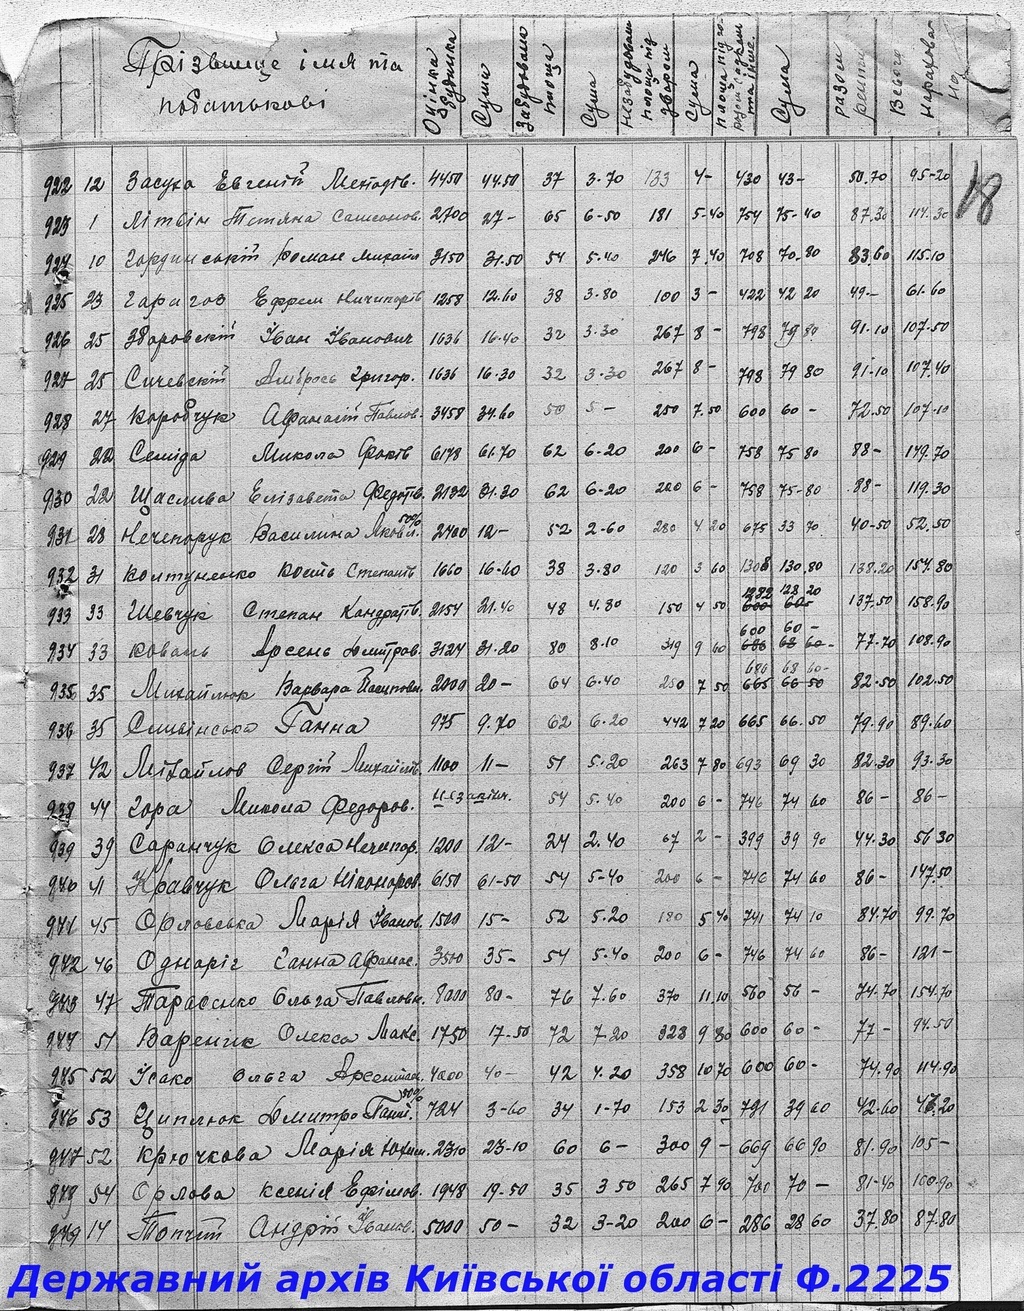 Прізвище імя та побатькові Оцінка будинка Сума Забудована площа Сума незабудован. площа під двором Сума площа під го- родом садом та інше. Сума разом ренти Всього Нарахова- но
18
922 12 Засуха Евгеній Методів. 4450 44.50 37 3-70 133 4- 430 43- 50.70 95-20
923 1 Літвін Тетяна Самсонов. 2700 27- 65 6-50 181 5-40 754 75-40 87.30 114.30
924 10 Гординський Роман Михайл 3150 31.50 54 5-40 246 7.40 708 70.80 83.60 115.10
925 23 Гарагоз Ефрем Ничипорів 1258 12.60 38 3-80 100 3- 422 42 20 49- 61.60
926 25 Іван Іванович 1636 16.40 32 3-30 267 8- 798 79 80 91-10 107.50
927 25 Сичевскій Амбрось Григор. 1636 16.30 32 3-30 267 8- 798 79 80 91-10 107.40
928 27 Коробчук Афанасій Павлов. 3458 34.60 50 5- 250 7.50 600 60- 72.50 107-10
929 22 Семіда Микола Фоків 6178 61.70 62 6-20 200 6- 758 75 80 88- 149.70
930 22 Щаслива Елізавета Федотів. 3132 31.20 62 6-20 200 6- 758 75-80 88- 119.30
931 28 Нечепорук Василина Яковл. 50% 2400 12- 52 2-60 280 4 20 675 33 70 40-50 52.50
932 31 Колтуненко Кость Степанів 1660 16-60 38 3-80 120 3 60 1308 130.80 138.20 154.80
1282 128 20
933 33 Шевчук Степан Кондратів 2154 21.40 48 4.80 150 4 50 600 60- 137.50 158.90
600 60-
934 33 Коваль Арсень Дмитров. 3124 31-20 80 8.10 319 9 60 686 68 60- 77-70 108.90
686 68 60-
935 35 Михайлюк Варвара 2000 20- 64 6-40 250 7 50 665 66 50 82.50 102.50
936 35 Ганна 975 9.70 62 6-20 442 7 20 665 66.50 79.90 89.60
937 42 Міхайлов Сергій Михайлів. 1100 11- 51 5-20 263 7 80 693 69 30 82.30 93.30
938 44 Гора Микола Федоров. 54 5-40 200 6- 746 74 60 86- 86-
939 39 Саранчук Олекса Нечипор. 1200 12- 24 2.40 67 2- 399 39 90 44.30 56 30
940 41 Кравчук Ольга Ніконоров. 6150 61-50 54 5-40 200 6- 746 74 60 86- 147.50
941 45 Орловська Марія Іванов. 1500 15- 52 5.20 180 5 40 741 74 10 84.70 99.70
942 46 Одноріг Ганна Афанас. 3500 35- 54 5-40 200 6- 746 74 60 86- 121-
943 47 Тарасенко Ольга Павловн. 8000 80- 76 7.60 370 11 10 560 56- 74.70 154.70
944 51 Варенік Олекса Макс. 1750 17-50 72 7-20 323 9 80 600 60- 77- 94.50
945 52 Ісако Ольга 4000 40- 42 4.20 358 10 70 600 60- 74.90 114.90
946 53 Циплюк Дмитро 50% 724 3-60 34 1-70 153 2 30 791 39 60 42.60 47.20
947 52 Крючкова Марія Юхим. 2310 23-10 60 6- 300 9- 669 66 90 81.90 105-
948 54 Орлова Ксенія Ефімов. 1948 19.50 35 3 50 265 7 90 700 70- 81-40 100.90
949 14 Топчій Андрій Іванов. 5000 50- 32 3-20 200 6- 286 28 60 37.80 87.80
Державний архів Київської області Ф.2225